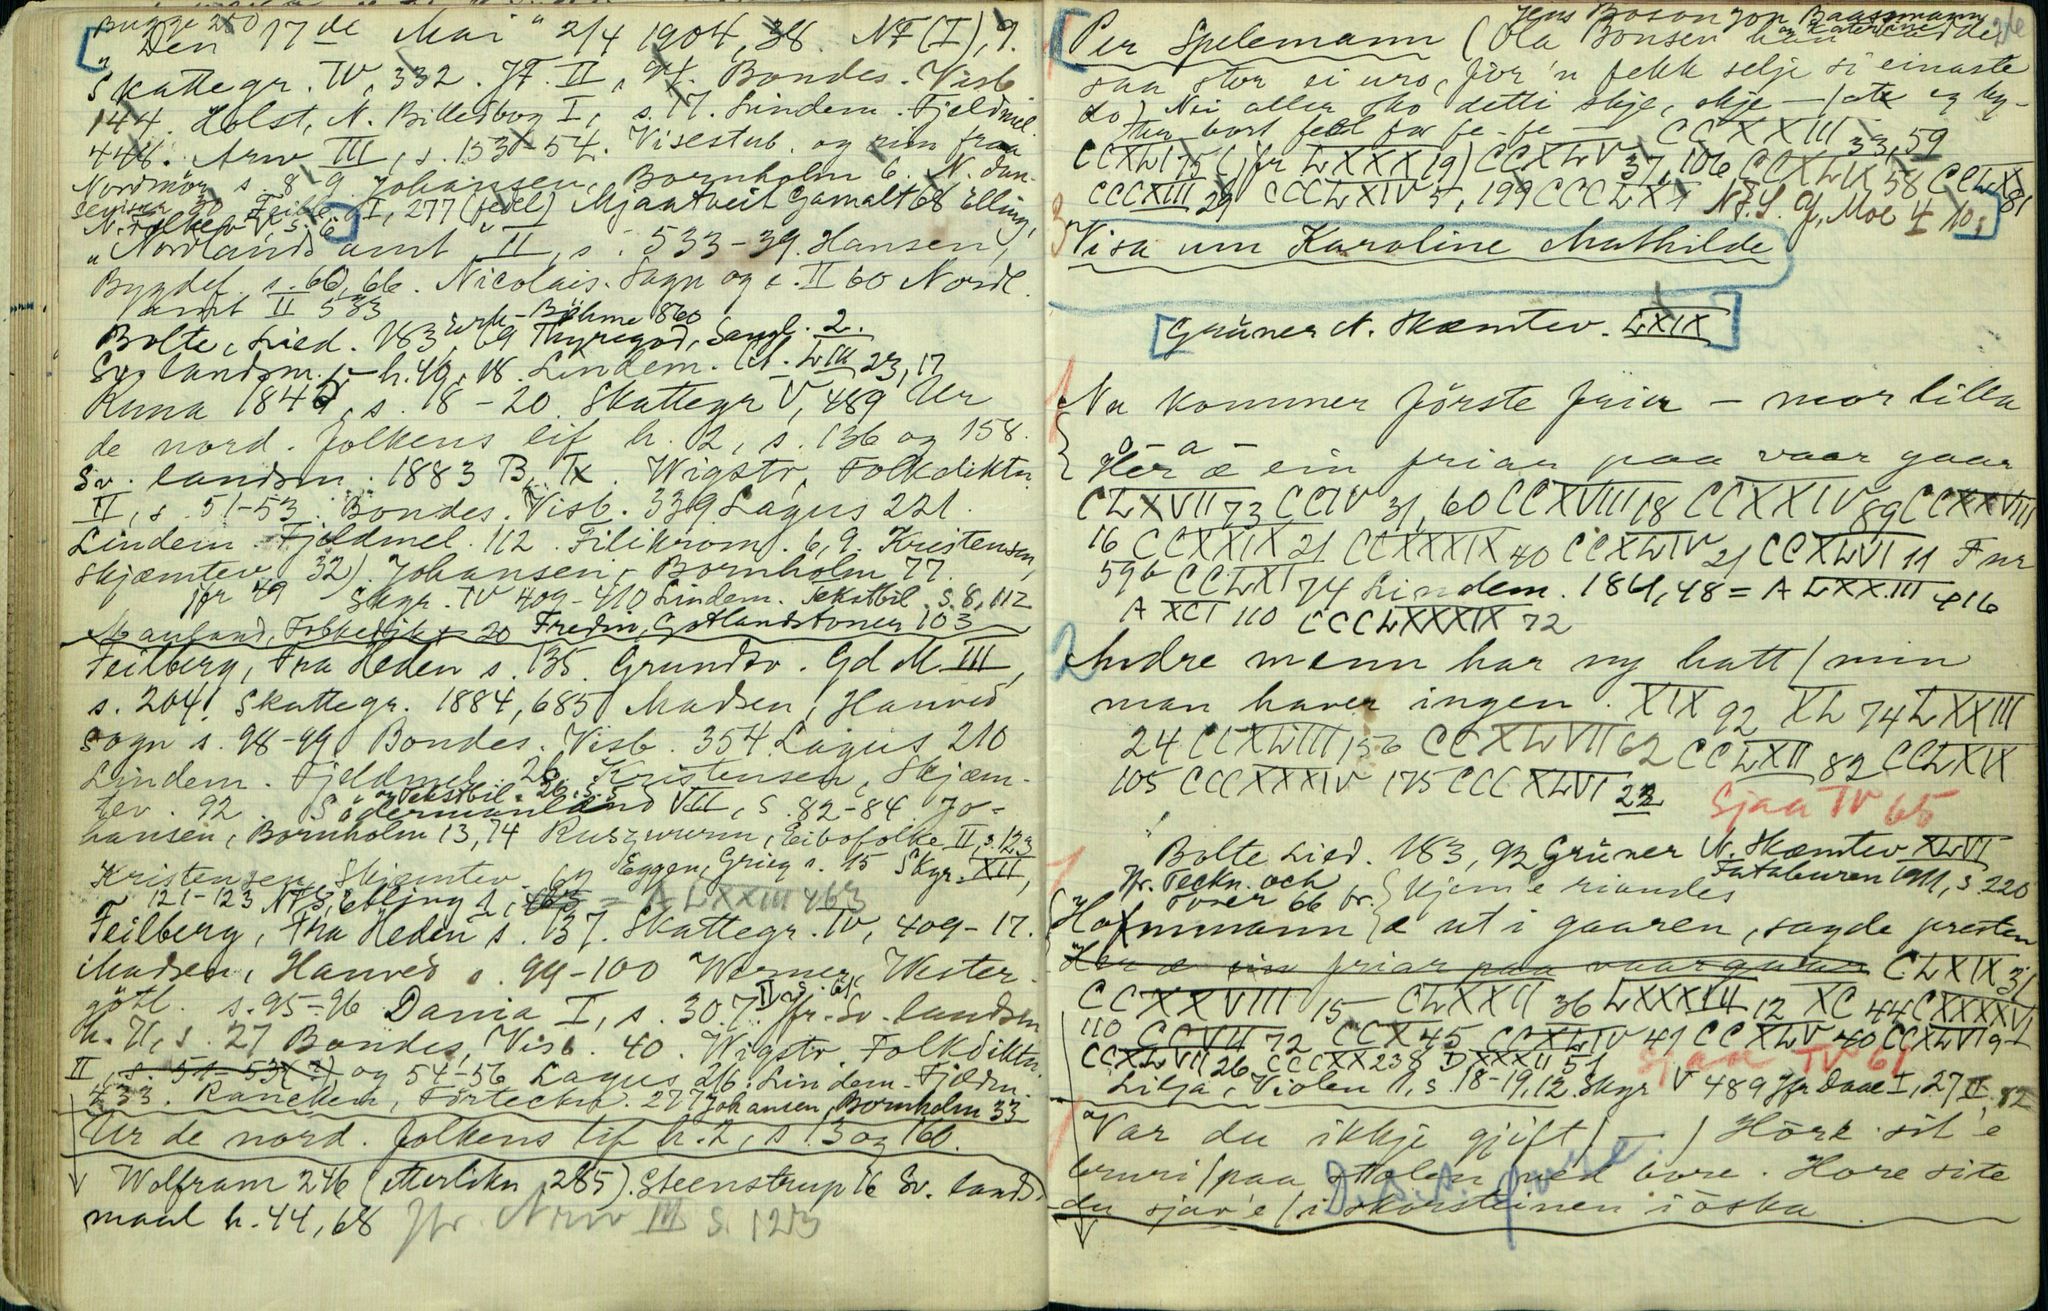 Bugge 250
„Den 17de Mai" 2/4 1904, 38. NF (I), 9.
Skattegr. IV, 332. JF. II, 94. Bondes. Visb
144. Holst, N. Billedbog I, s. 17. Lindem. Fjeldmel.
448. Arw III, s. 153-54. Visestub. og rim fraa
Nordmör s. 8-9. Johansen, Bornholm 6. N. dan-
I, 277 (fedel) Mjaatveit Gamalt 68 Elling,
N. Folkev. V, s. 6
„Nordlands amt" II, s. 533-39. Hansen,
Bygdef. s. 60, 66. Nicolais. Sagn og e. II 60 Nordl.
amt II 533
Erk-Böhme 860
Bolte, Lied. 183, 69 Thyregod, Sangl. 2.
Sv. landsm. h. 49, 18. Lindem. LIII 23, 17
Runa 1842, s. 18-20. Skattegr V, 489 Ur
de nord. folkens lif h. 2, s. 136 og 158.
Sv. landsm. 1883 B, IX. Wigstr, Folkdiktn.
II, s. 51-53. Bondes. Visb. 339 Lagus 221.
Lindem Fjeldmel. 112. Filikrom. 6, 9. Kristensen,
skjæmtev 32). Johansen, Bornholm 77.
jfr 49 Skgr. IV 409-410 Lindem. Tekstbil. s. 8, 112
20 Fredin, Gotlandstoner 103
Feilberg, Fra Heden s. 135. Grundtv. Gd M. III,
s. 204. Skattegr. 1884, 685 Madsen, Hanved
sogn s. 98-99 Bondes. Visb. 354 Lagus 210
Lindem. Fjeldmel. 26. Kristensen, Skjæm-
og Tekstbil. 26. s. 5
tev. 92. Södermanland VII, s. 82-84 Jo-
hansen, Bornholm 13, 74 Ruszwurm, Eibofolke II, s. 123
Kristensen, Skjæmtev. 69 Eggen, Grieg s. 15 Skgr. XII,
121-123 NFS, Elling = A LXXIII 463
Feilberg, Fra Heden s. 137. Skattegr. IV, 409-17.
Madsen, Hanved s. 99-100 Werner, Wester-
götl. s. 95-96. Dania I, s. 307. Jfr. Sv. landsm
h. 11, s. 27 Bondes. Visb. 40. Wigstr. Folkdiktn.
II, s. 51-53(?) og 54-56 Lagus 216. Lindem. Fjeldm
233. Rancken, Förteckn. 277 Johansen, Bornholm 33
Ur de nord. folkens lif h. 2, s 13 og 160.
Wolfram 246 (etterlikn 285). Steenstrup 16 Sv. lands-
maal h. 44, 68 Jfr. Arw III s. 123
Jens Boson
Per Spelemann (Ola Bonsen han
saa stor ei uro, för'n fekk selje si einaste
ko) Nei aller sko detti skje, skje - /
CCXXXIII 33, 59
CCXLI 75 (jfr LXXX 19) CCXLV 37, 106 CCXLIX 58 CCLX 81
CCCXIII 29 CCCLXIV 5, 199 CCCLXX NFS. G, Moe 4 10
Visa um Karoline Mathilde
Grüner N. Skæmtev. LXIX
Na kommer förste frier - mor lilla
Her æ ein friar paa vaar gaar
CLXVII 73 CCIV 31, 60 CCXVIII 18 CCXXIV 89 CCXXVIII
16 CCXXIX 21 CCXXXIX 40 CCXLIV 21 CCXLVI 11 Fnr
596 CCLXI 74 Lindem. 1861, 48 = A LXXIII 416
A XCI 110 CCCLXXXIX 72
2 Andre menn har ny hatt / min
man haver ingen. XIX 92 XL 74 LXXIII
24 CCXLIII 156 CCXLVII 62 CCLXII 82 CCLXIX
105 CCCXXXIV 175 CCCXLVI 22 Sjaa IV 65
Bolte Lied. 183, 92 Grüner N. Skæmtev XLVI
Jfr. Teckn. och Toner 66 Fataburen 1911, s. 220
Kjem e riandes
Hofmmann e ut i gaaren, sagde presten
Her æ ein friar paa vaar gaar CLXIX 31
CCXXVIII 15 CLXXII 36 LXXXIII 12 XC 44 CXXXVI
110 CCVII 72 CCX 45 CCXLIV 41 CCXLV 40 CCXLVI 9
CCXLVII 26 CCCXX 238 DXXXII 51 Sjaa IV 61
Lilja, Violen 1, s. 18-19, 12. Skgr V 489 Jfr Daae I, 27 II, 82
Var du ikkje gjift / - / Hörk sit e
bruri / paa stolen ved bore. Hore site
du sjav'e / i skorsteinen i öska